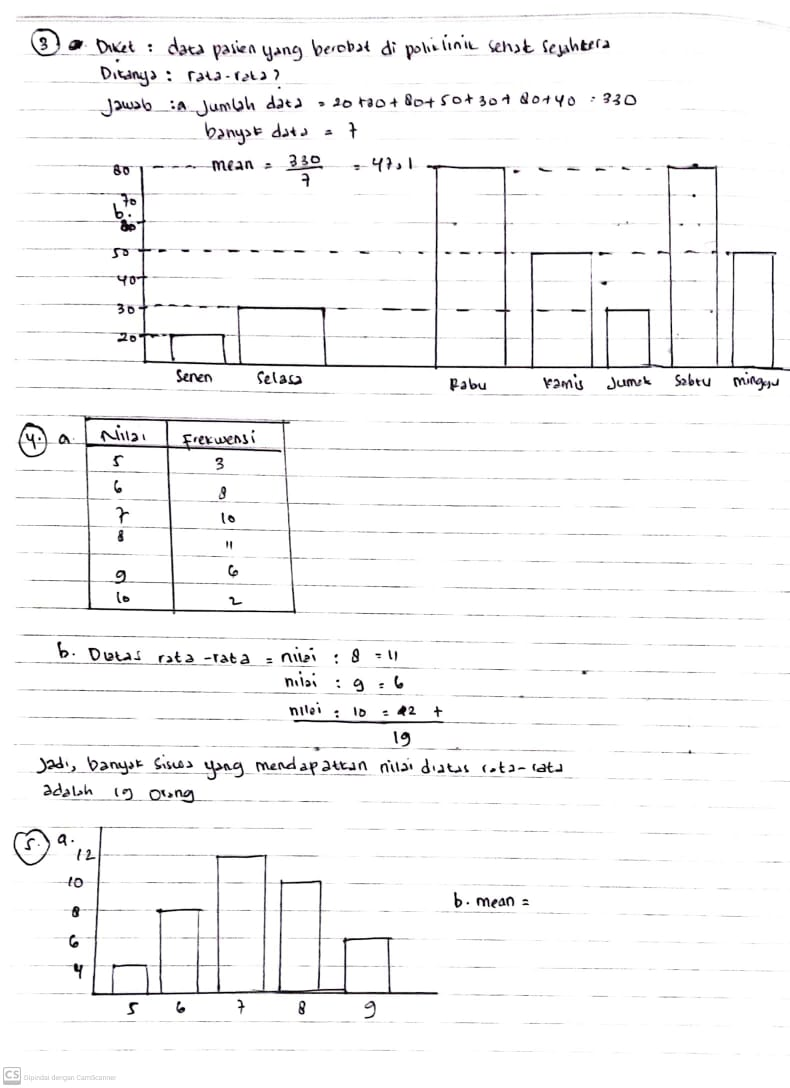 3 Diket : data pasien yang berobat di poliklinik sehat sejahtera
Ditanya : rata-rata?
Jawab : a Jumlah data = 20 +30 + 80 + 50 + 30 + 80 + 40 = 330
banyak data = 7
mean = 330/7 = 47,1
b.
80
70
60
50
40
30
20
Senen Selasa Rabu Kamis Jumat Sabtu minggu
4. a. Nilai Frekwensi
5 3
6 8
7 10
8 11
9 6
10 2
b. Diatas rata-rata = nilai : 8 = 11
nilai : 9 = 6
nilai : 10 = 2 +
19
Jadi, banyak siswa yang mendapatkan nilai diatas rata-rata
adalah 19 orang
5. a.
12
10
8
6
4
5 6 7 8 9
b. mean =
CS Dipindai dengan CamScanner